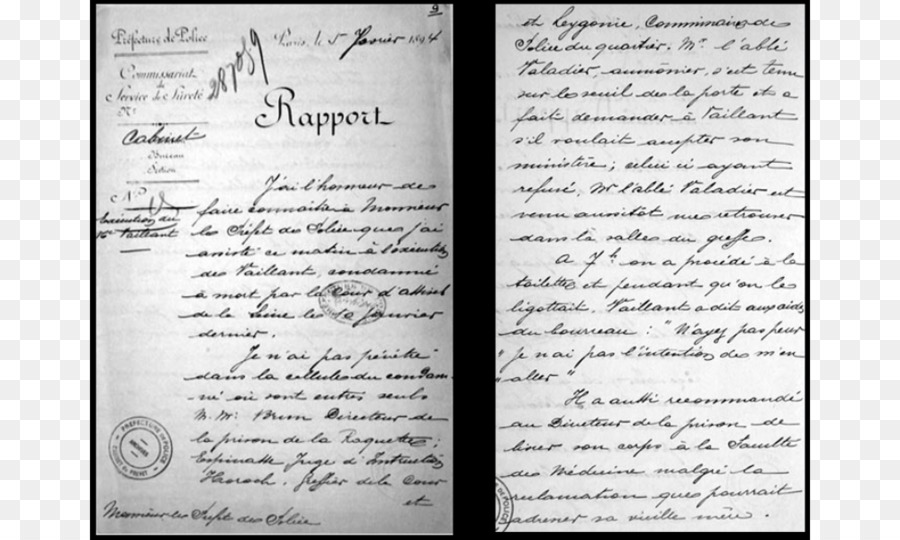 9
Préfecture de Police
Paris, le 5 Février 1894
Commissariat
du
Service de Sûreté
287089
No
Rapport
Cabinet
Bureau
Section
No
Exécution du
Vaillant
J'ai l'honneur de
faire connaitre à Monsieur
le Préfet de Police que j'ai
assisté ce matin à l'exécution
de Vaillant, condamné
à mort par la Cour d'assises
de la Seine le 10 Janvier
dernier.
Je n'ai pas pénétré
dans la cellule du condam-
né où sont entrés seuls
M. Mr. Brun Directeur de
la prison de la Roquette;
Espinasse Juge d'Instruction
Horoch, Greffier de la Cour
et
Monsieur le Préfet de Police
PREFECTURE DE POLICE
et Leygonie, Commissaire de
Police du quartier. Mr l'abbé
Valadier, aumônier, s'est tenu
sur le seuil de la porte et a
fait demander à Vaillant
s'il voulait accepter son
ministère; celui ci ayant
refusé, Mr l'abbé Valadier est
venu aussitôt me retrouver
dans la salle du greffe.
A 7h on a procédé à la
toilette et pendant qu'on le
ligottait, Vaillant a dit aux aides
du bourreau : "N'ayez pas peur
"je n'ai pas l'intention de m'en
"aller"
Il a aussi recommandé
au Directeur de la prison de
livrer son corps à la Faculté
de Médecine malgré la
réclamation que pourrait
adresser sa vieille mère.